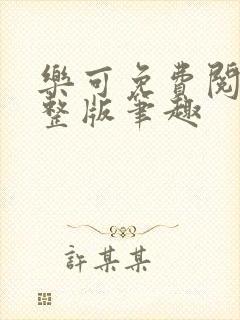 樂可免費閱
整版筆趣
許某某